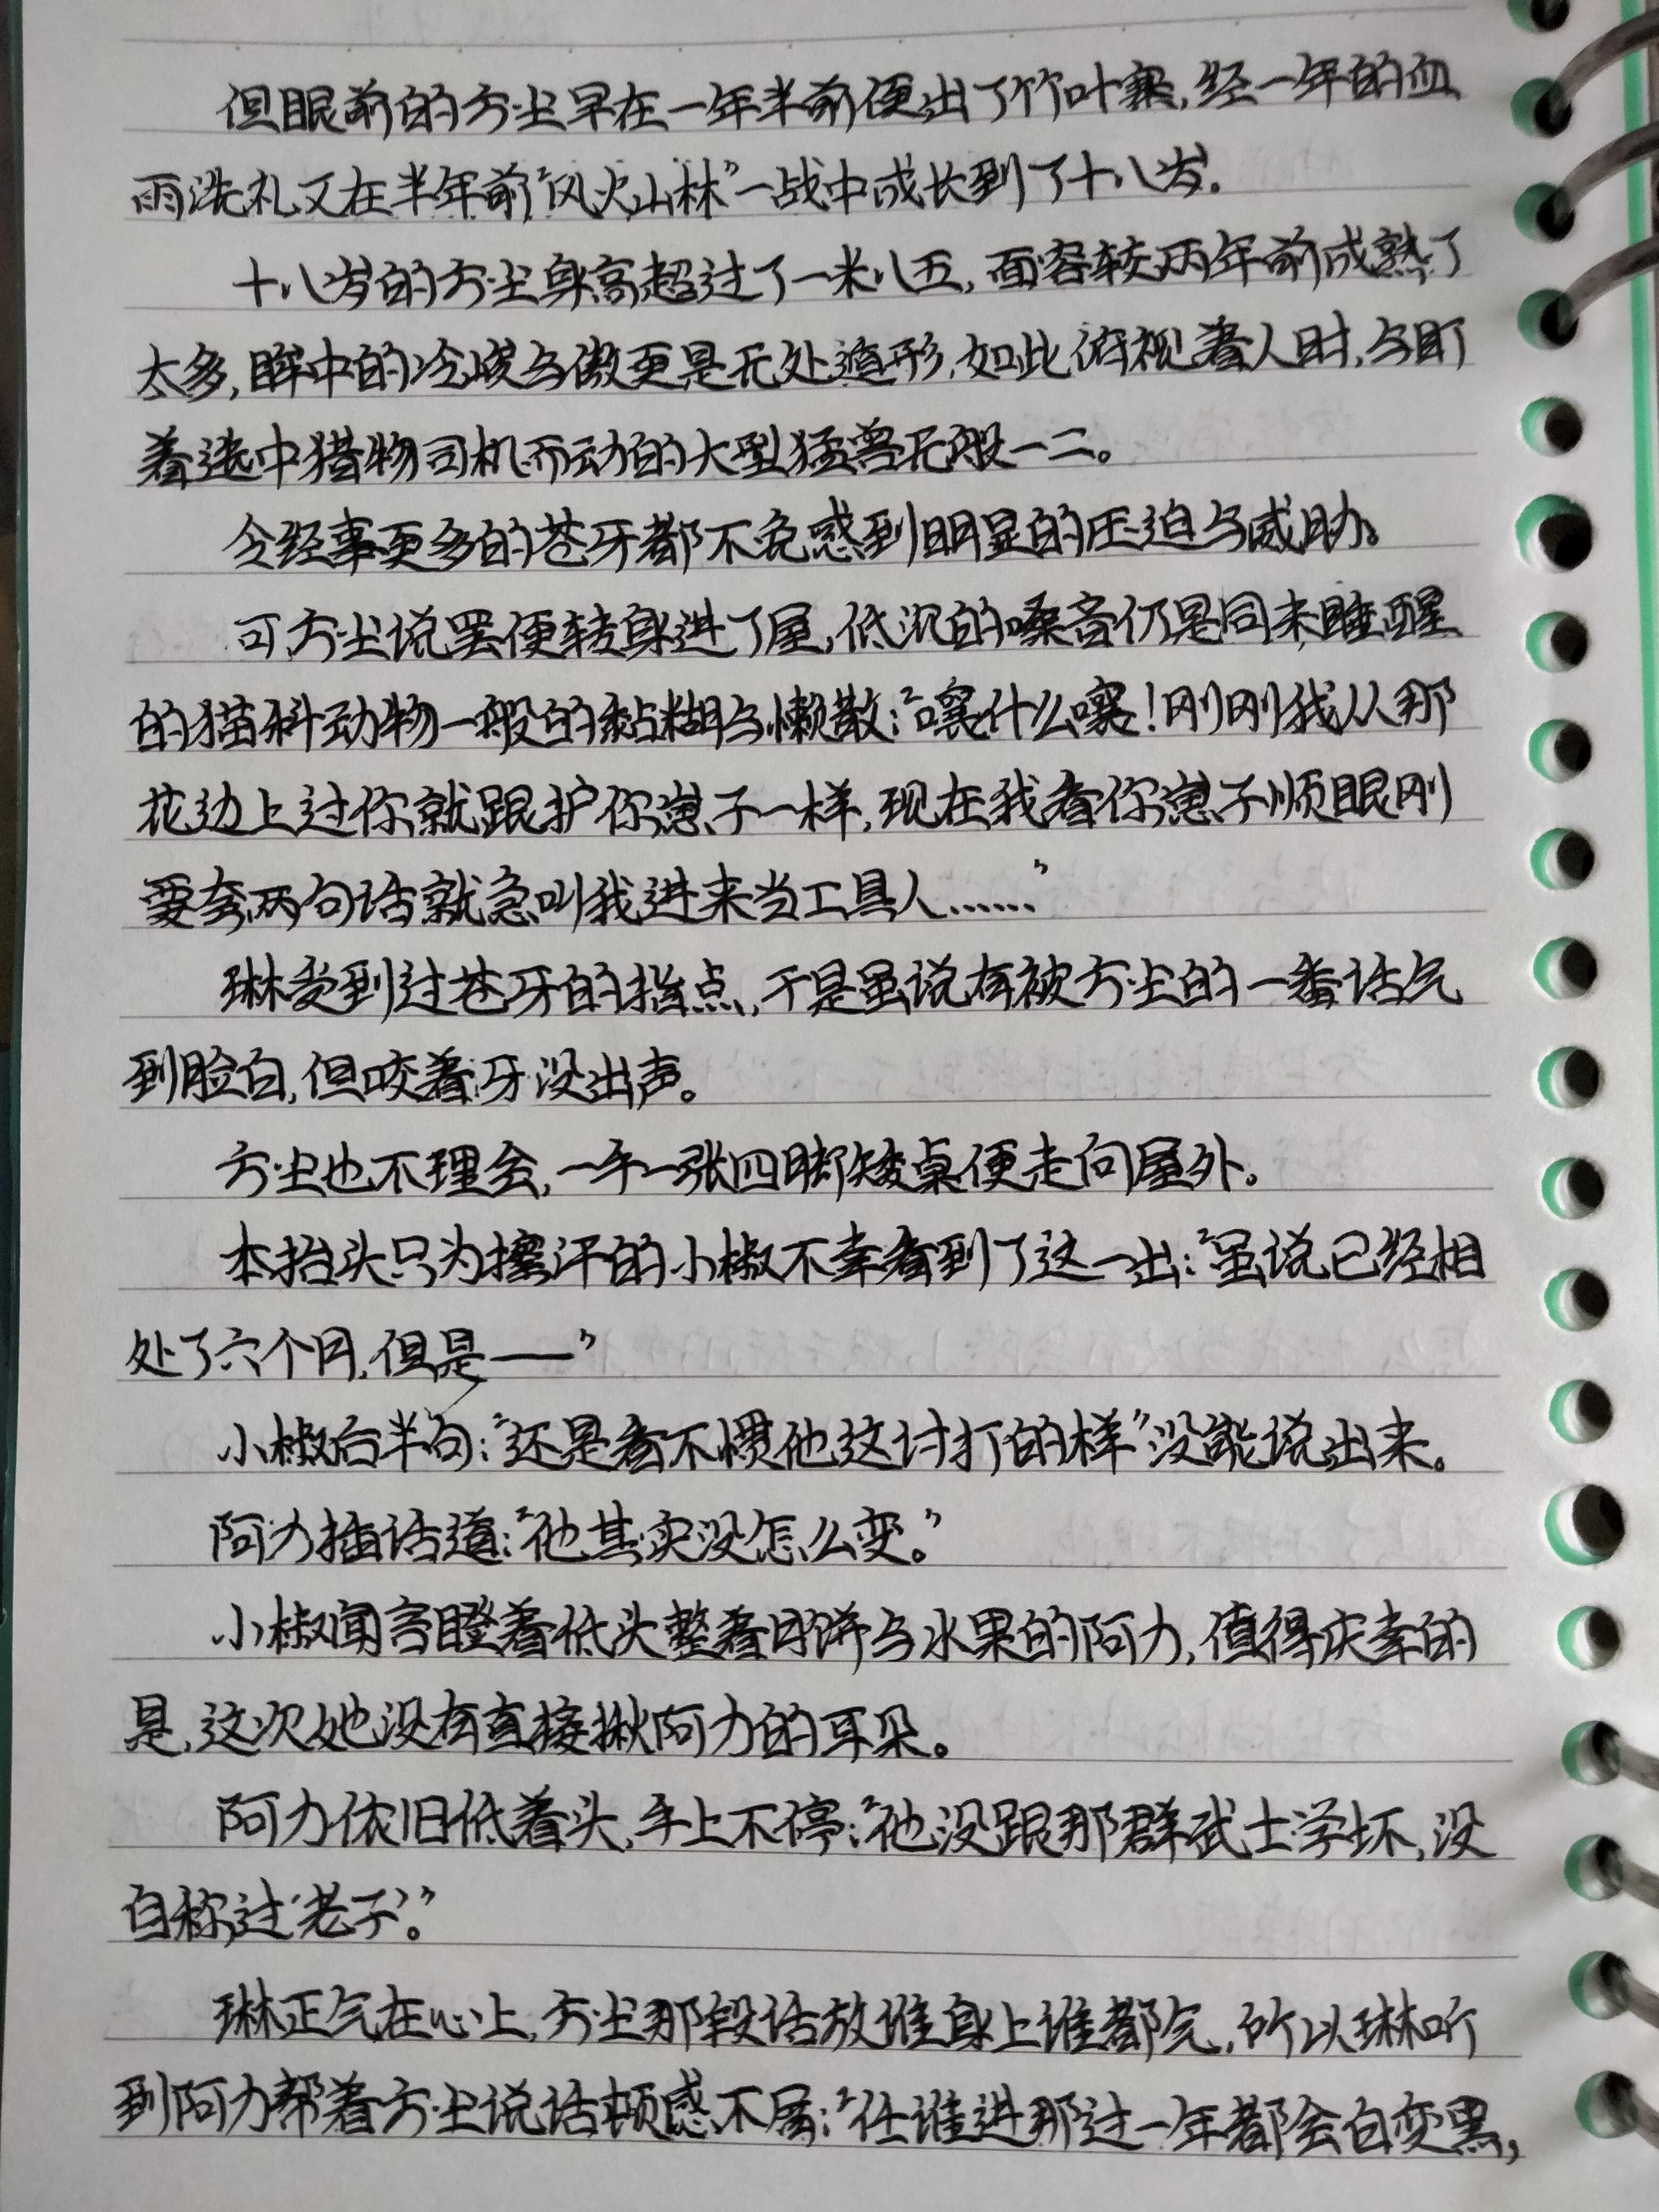 但眼前的方尘早在一年半前便出了竹叶寨,经一年的血
雨洗礼又在半年前“风火山林”一战中成长到了十八岁。
十八岁的方尘身高超过了一米八五,面容较两年前成熟了
太多,眸中的冷峻与傲更是无处遁形,如此俯视着人时,与盯
着选中猎物司机而动的大型猛兽无般一二。
令经事更多的苍牙都不免感到明显的压迫与威胁。
可方尘说罢便转身进了屋,低沉的嗓音仍是同未睡醒
的猫科动物一般的黏糊与懒散:“嚷什么嚷!刚刚我从那
花边上过你就跟护你崽子一样,现在我看你崽子顺眼刚
要夸两句话就急叫我进来当工具人……”
琳受到过苍牙的指点,于是虽说有被方尘的一番话气
到脸白,但咬着牙没出声。
方尘也不理会,一手一张四脚矮桌便走向屋外。
本抬头只为擦汗的小椒不幸看到了这一出:“虽说已经相
处了六个月,但是——”
小椒后半句:“还是看不惯他这讨打的样”没能说出来。
阿力插话道:“他其实没怎么变。”
小椒闻言瞪着低头整着月饼与水果的阿力,值得庆幸的
是,这次她没有直接揪阿力的耳朵。
阿力依旧低着头,手上不停:“他没跟那群武士学坏,没
自称过‘老子’。”
琳正气在心上,方尘那段话放谁身上谁都气,所以琳听
到阿力帮着方尘说话顿感不屑:“任谁进那过一年都会白变黑,